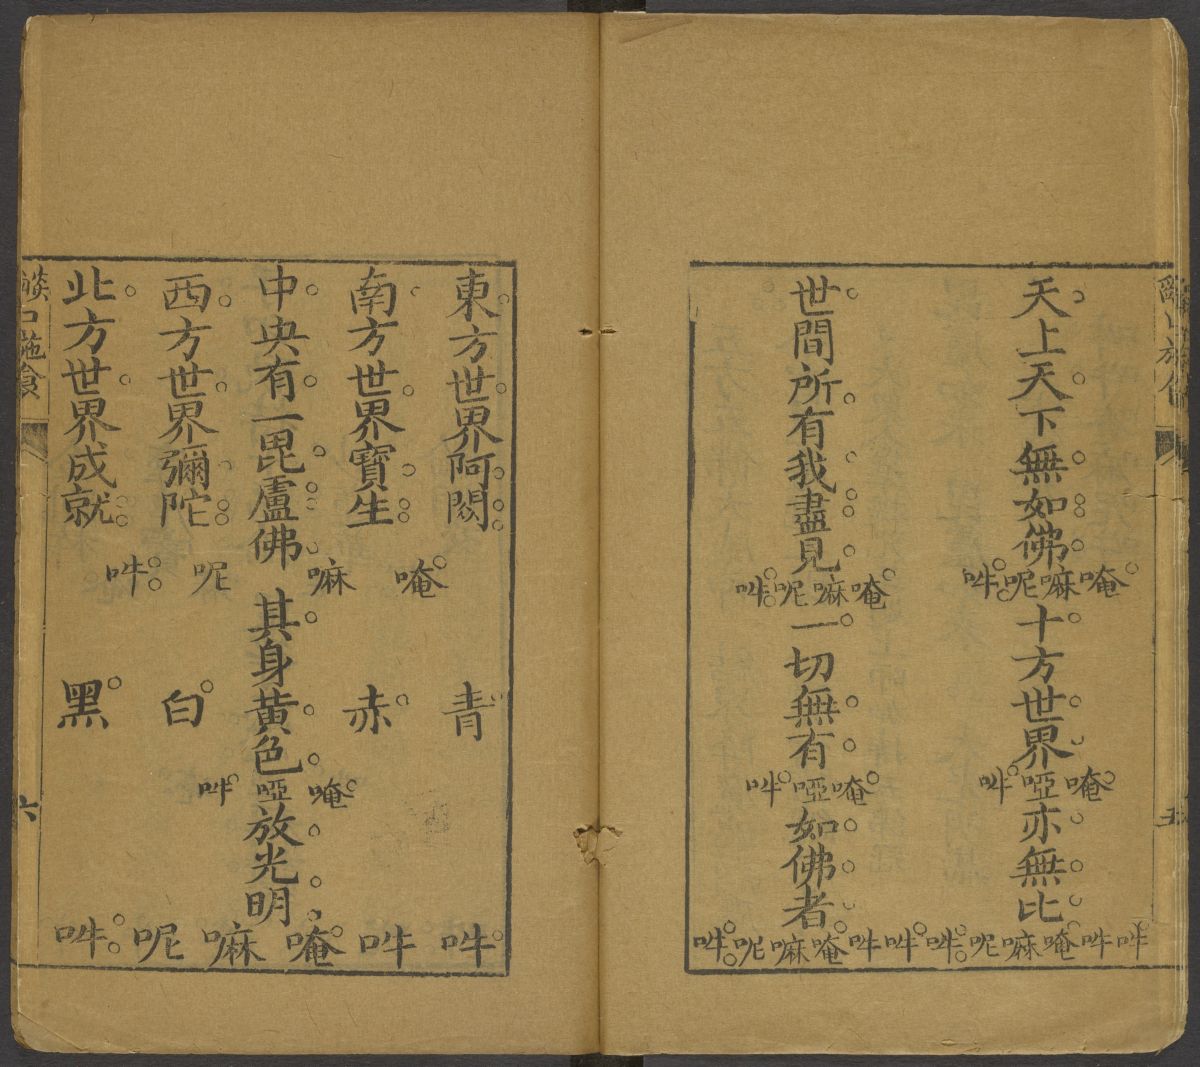 天上天下無如佛
唵嘛呢吽
十方世界
唵啞吽
亦無比
吽吽唵嘛呢吽
世間所有我盡見
唵嘛呢吽
一切無有
唵啞吽
如佛者
吽吽唵嘛呢吽
東方世界阿閦
南方世界寶生
中央有一毘盧佛
西方世界彌陀
北方世界成就
唵嘛呢吽
青
赤
其身黃色
白
黑
唵啞吽
放光明
吽吽唵嘛呢吽
燄口施食
六